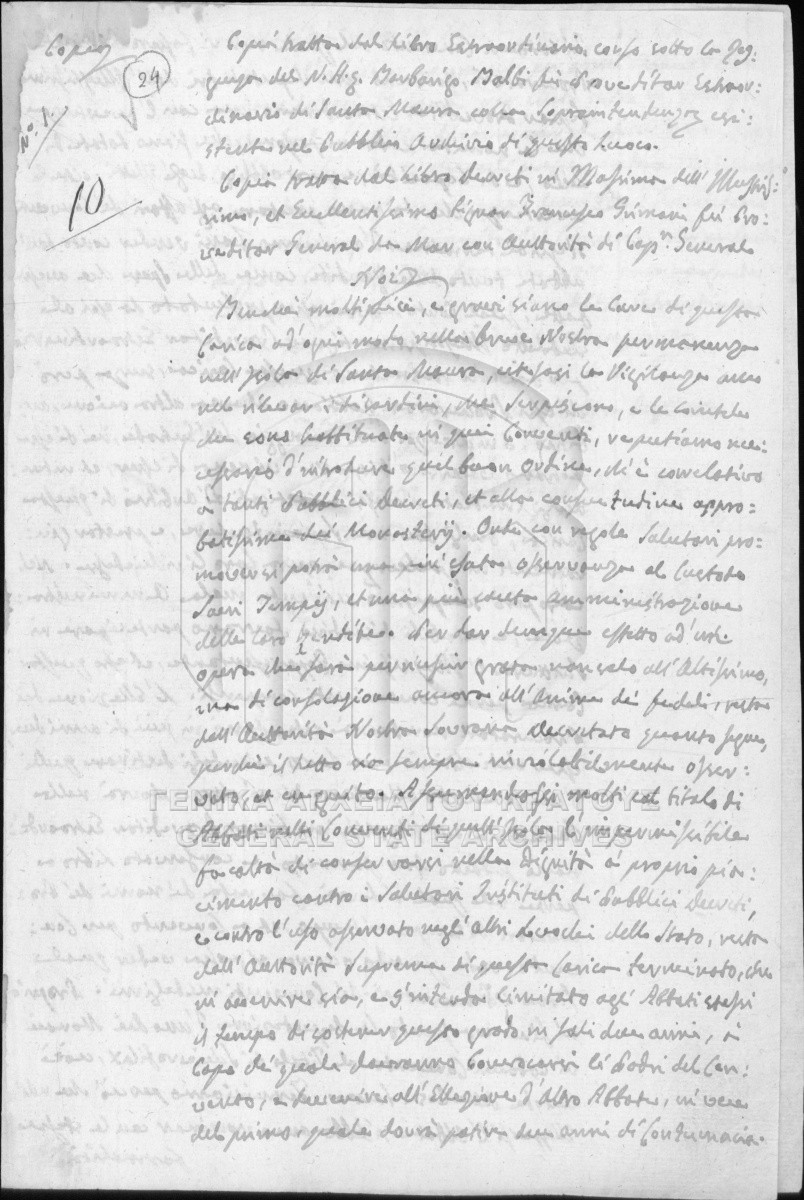 Copia
24
N.° 1.
10
Copia tratta dal Libro Estraordinario corso sotto la Reg:
genza del N. H. g. Barbarigo Balbi fù Proveditor Estraor:
dinario di Santa Maura colla Sopraintendenza esi:
stente nel Pubblico Archivio di questo Luoco.
Copia tratta dal Libro Decreti in Massima dell' Illustris:
simo, et Eccellentissimo Signor Francesco Grimani fù Pro:
veditor General da Mar con Auttorità di Cap.n General
Noi
Benchè moltiplici, e gravi siano le Cure di questa
Carica ad'ogni modo nella breve Nostra permanenza
nell'Isola di Santa Maura, la Vigilanza anco
nel rilevar i disordini, che, e le
che sono in quei Conventi, reputiamo nec:
cessario d'introdure quel buon ordine, ch'è correlativo
a tanti Pubblici Decreti, et alla consuetudine appro:
batissima dei Monasterij. Onde con regole salutari pro:
moversi potrà una più esata osservanza al Custode
Sacri Tempij, et una più cauta amministrazione
delle loro rendite. Per dar dunque effetto ad'un'
opera che sarà per riuscir grata non solo all'Altissimo,
ma di consolazione ancora all'Anime dè fedeli, resta
dall'Auttorità Nostra Sovrana Decretato quanto segue,
perchè il tutto sia sempre inviolabilmente osser:
vato, et eseguito. Assumendosi molti col titolo di
Abbati nelli Conventi di quest'Isola l'
facoltà di conservarsi nella Dignità à proprio pia:
cimento contro i Salutari Instituti di Pubblici Decreti,
e contro l'uso osservato negl'altri Luochi dello Stato, resta
dall'Auttorità Suprema di questa Carica terminato, che
in avvenire sia, e s'intenda limitato agl'Abbati stessi
il tempo di sostener questo grado in soli due anni, à
Capo de quali doveranno Convocarsi li Padri del Con:
vento, e devenire all'Ellezione d'altro Abbate, in vece
del primo, quale dovrà patire due anni di Contumacia.
ΓΕΝΙΚΑ ΑΡΧΕΙΑ ΤΟΥ ΚΡΑΤΟΥΣ
GENERAL STATE ARCHIVES